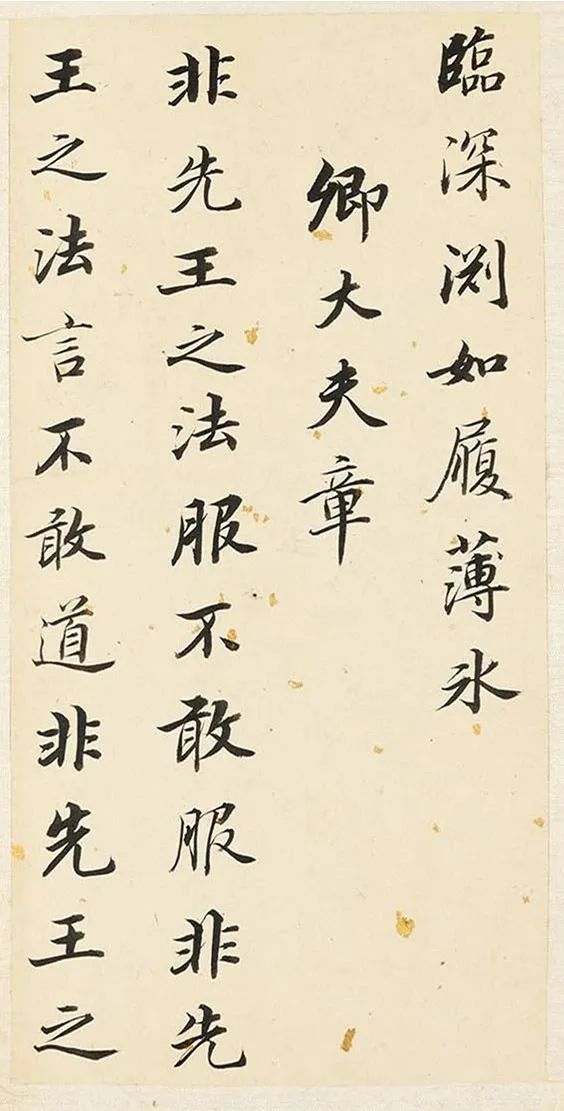 臨深渕如履薄氷
卿大夫章
非先王之法服不敢服非先
王之法言不敢道非先王之